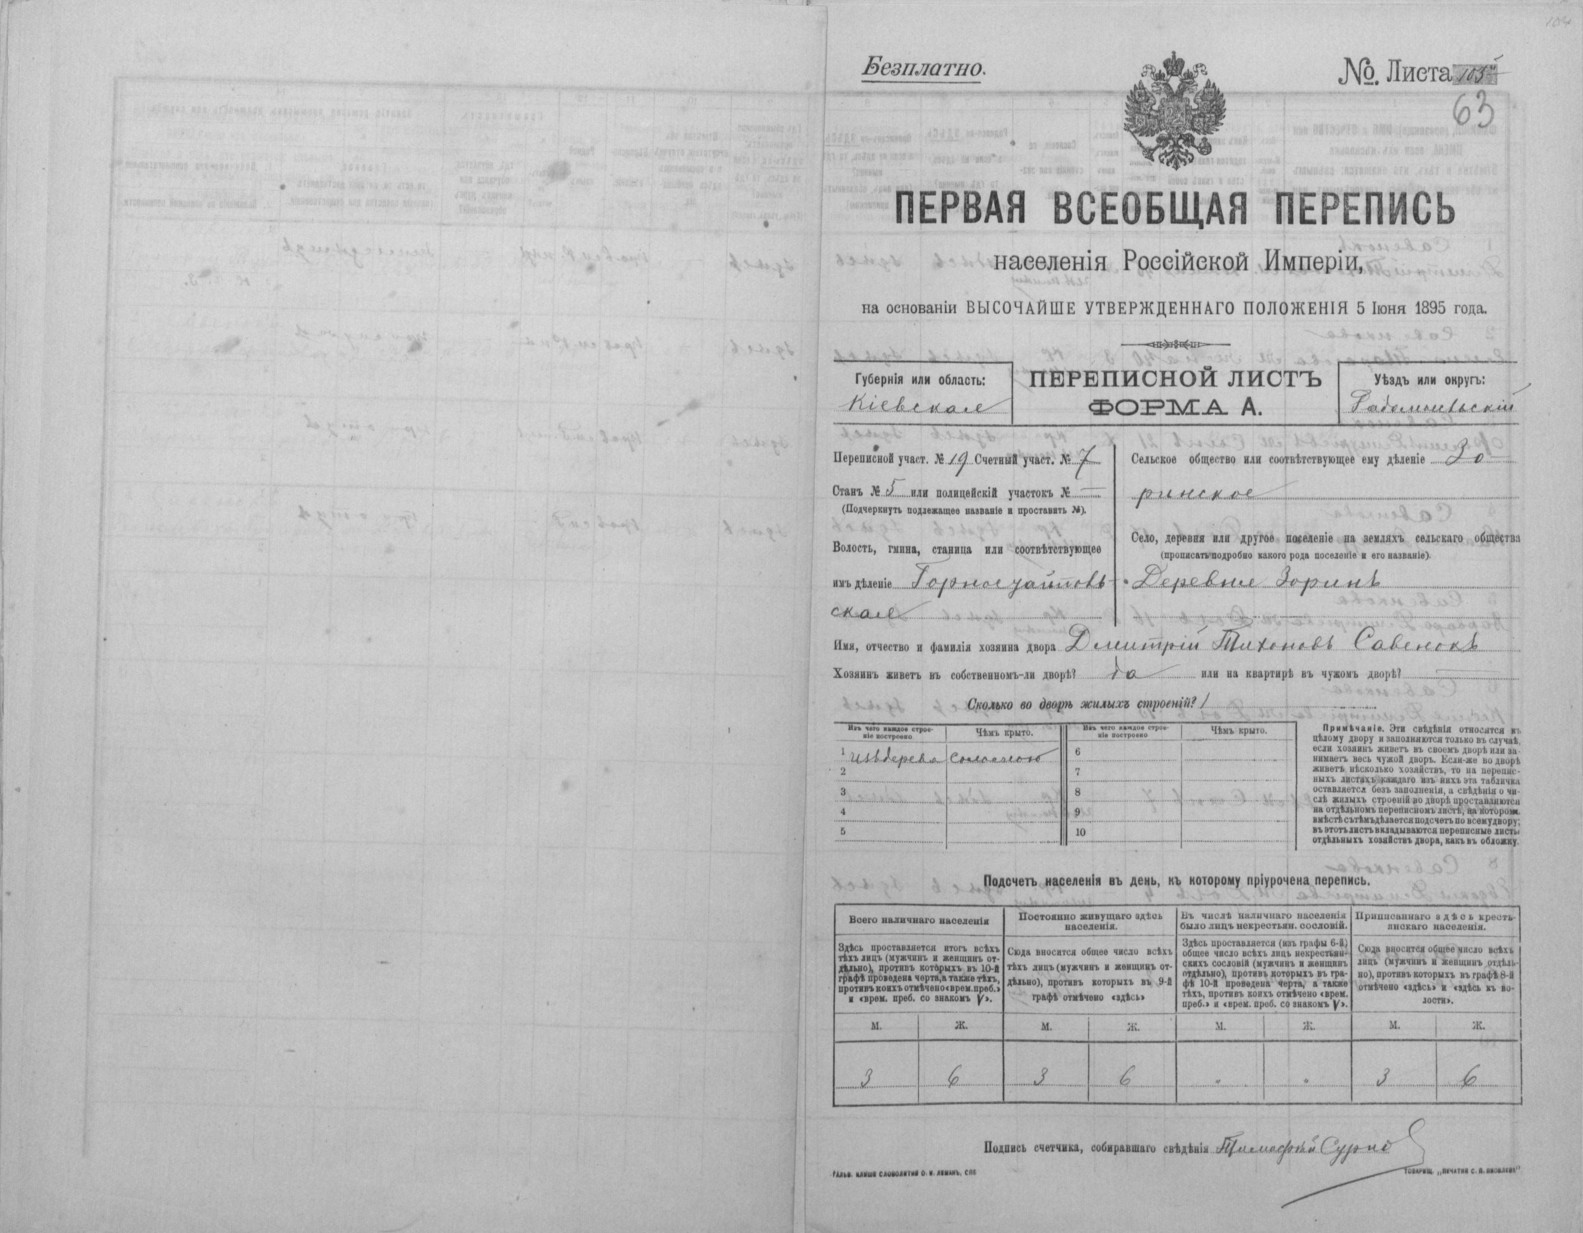 Безплатно.
№. Листа 103
63
ПЕРВАЯ ВСЕОБЩАЯ ПЕРЕПИСЬ
населенія Россійской Имперіи,
на основаніи ВЫСОЧАЙШЕ УТВЕРЖДЕННАГО ПОЛОЖЕНІЯ 5 Іюня 1895 года.
Губернія или область:
Кіевская
ПЕРЕПИСНОЙ ЛИСТЪ
ФОРМА А.
Уѣздъ или округъ:
Радомысльскій
Переписной участ. № 19 Счетный участ. № 7
Станъ № 5 или полицейскій участокъ № —
(Подчеркнуть подлежащее названіе и проставить №).
Волость, гмина, станица или соотвѣтствующее
имъ дѣленіе Горностайпов-
ская
Сельское общество или соотвѣтствующее ему дѣленіе Зо
ринское
Село, деревня или другое поселеніе на земляхъ сельскаго общества
(прописать подробно какого рода поселеніе и его названіе).
Деревня Зоринъ
Имя, отчество и фамилія хозяина двора Дмитрій Тихоновъ Савенокъ
Хозяинъ живетъ въ собственномъ-ли дворѣ? да или на квартирѣ въ чужомъ дворѣ? —
Сколько во дворѣ жилыхъ строеній? 1
Изъ чего каждое строе-
ніе построено
Чѣмъ крыто.
Изъ чего каждое строе-
ніе построено
Чѣмъ крыто.
1 Изъ дерева соломою
2
3
4
5
6
7
8
9
10
Примѣчаніе. Эти свѣдѣнія относятся къ
цѣлому двору и заполняются только въ случаѣ,
если хозяинъ живетъ въ своемъ дворѣ или за-
нимаетъ весь чужой дворъ. Если-же во дворѣ
живетъ нѣсколько хозяйствъ, то на перепис-
ныхъ листахъ каждаго изъ нихъ эта табличка
оставляется безъ заполненія, а свѣдѣнія о чи-
слѣ жилыхъ строеній во дворѣ проставляются
на отдѣльномъ переписномъ листѣ, на которомъ
вмѣстѣ съ тѣмъ дѣлается подсчетъ по всему двору;
въ этотъ листъ вкладываются переписные листы
отдѣльныхъ хозяйствъ двора, какъ въ обложку.
Подсчетъ населенія въ день, къ которому пріурочена перепись.
Всего наличнаго населенія
Здѣсь проставляется итогъ всѣхъ
тѣхъ лицъ (мужчинъ и женщинъ от-
дѣльно), противъ которыхъ въ 10-й
графѣ проведена черта, а также тѣхъ,
противъ коихъ отмѣчено «врем. преб.»
и «врем. преб. со знакомъ V».
Постоянно живущаго здѣсь
населенія.
Сюда вносится общее число всѣхъ
тѣхъ лицъ (мужчинъ и женщинъ от-
дѣльно), противъ которыхъ въ 9-й
графѣ отмѣчено «здѣсь»
Въ числѣ наличнаго населенія
было лицъ некрестьян. сословій.
Здѣсь проставляется (изъ графы 6-й)
общее число всѣхъ лицъ некрестьян-
скихъ сословій (мужчинъ и женщинъ
отдѣльно), противъ которыхъ въ гра-
фѣ 10-й проведена черта, а также
тѣхъ, противъ коихъ отмѣчено «врем.
преб.» и «врем. преб. со знакомъ V».
Приписаннаго здѣсь кресть-
янскаго населенія.
Сюда вносится общее число всѣхъ
лицъ (мужчинъ и женщинъ отдѣль-
но), противъ которыхъ въ графѣ 8-й
отмѣчено «здѣсь» и «здѣсь къ во-
лости».
М. Ж. М. Ж. М. Ж. М. Ж.
3 6 3 6 . . 3 6
Подпись счетчика, собиравшаго свѣдѣнія Тимофей
ГАЛЬВ. КЛИШЕ СЛОВОЛИТНИ О. И. ЛЕМАНЪ, СПБ
ТОВАРИЩ. „ПЕЧАТНЯ С. П. ЯКОВЛЕВА"